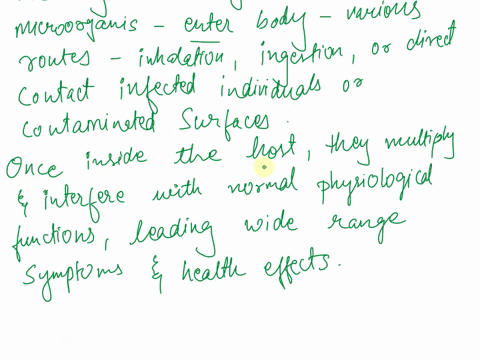 microorganis - enter body - various
routes - inhalation, ingestion, or direct
Contact infected individuals or
Contaminated Surfaces.
Once inside the host, they multiply
& interfere with normal physiological
functions, leading wide range
Symptoms & health effects.